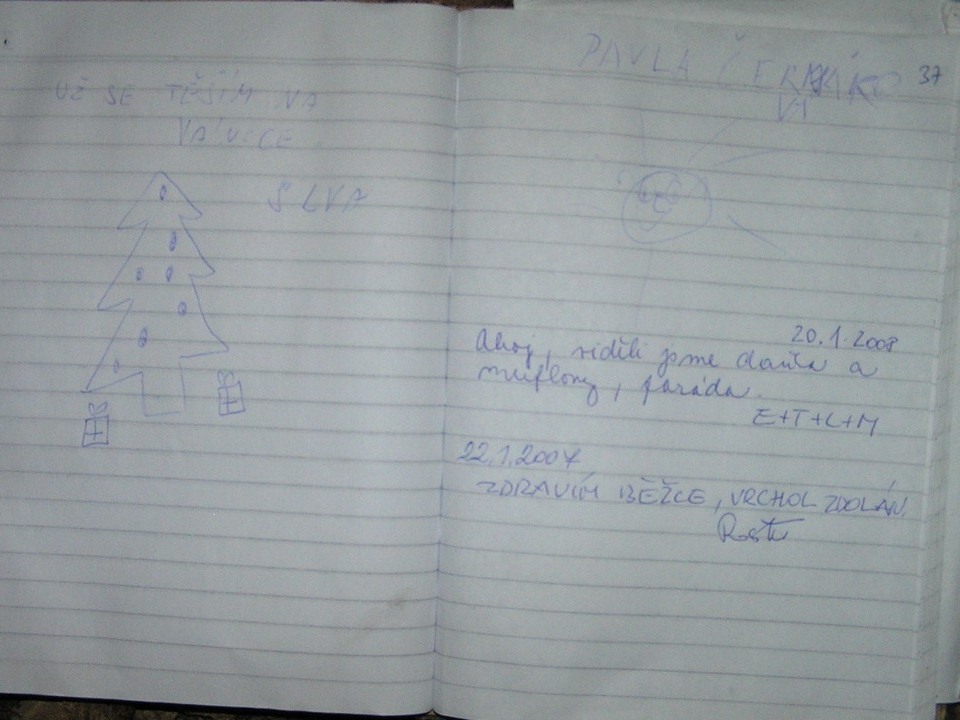 UŽ SE TĚŠÍM NA
VÁNOCE
SLVA
PAVLA
37
20.1.2008
Ahoj, viděli jsme daňka a
muflony, paráda.
E+T+L+M
22.1.2007
ZDRAVÍM BĚŽCE, VRCHOL ZDOLÁN.